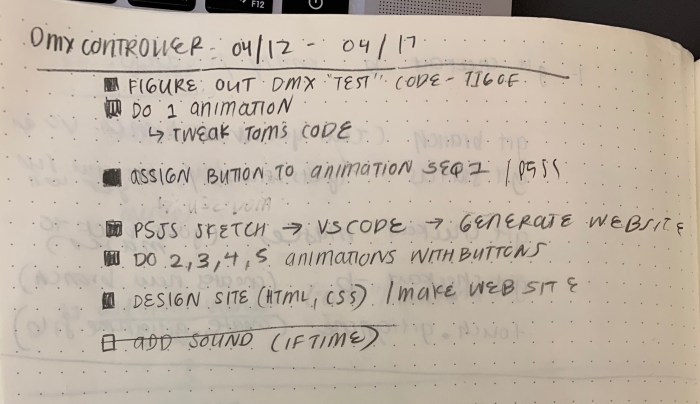 F12
DMX CONTROLLER - 04/12 - 04/17
FIGURE OUT DMX "TEST" CODE - TIGOE
DO 1 ANIMATION
↳ TWEAK TOMS CODE
ASSIGN BUTTON TO ANIMATION SEQ 1 / P5JS
P5JS SKETCH → VS CODE → GENERATE WEBSITE
DO 2,3,4,5 ANIMATIONS WITH BUTTONS
DESIGN SITE (HTML, CSS) / MAKE WEB SITE
ADD SOUND (IF TIME)